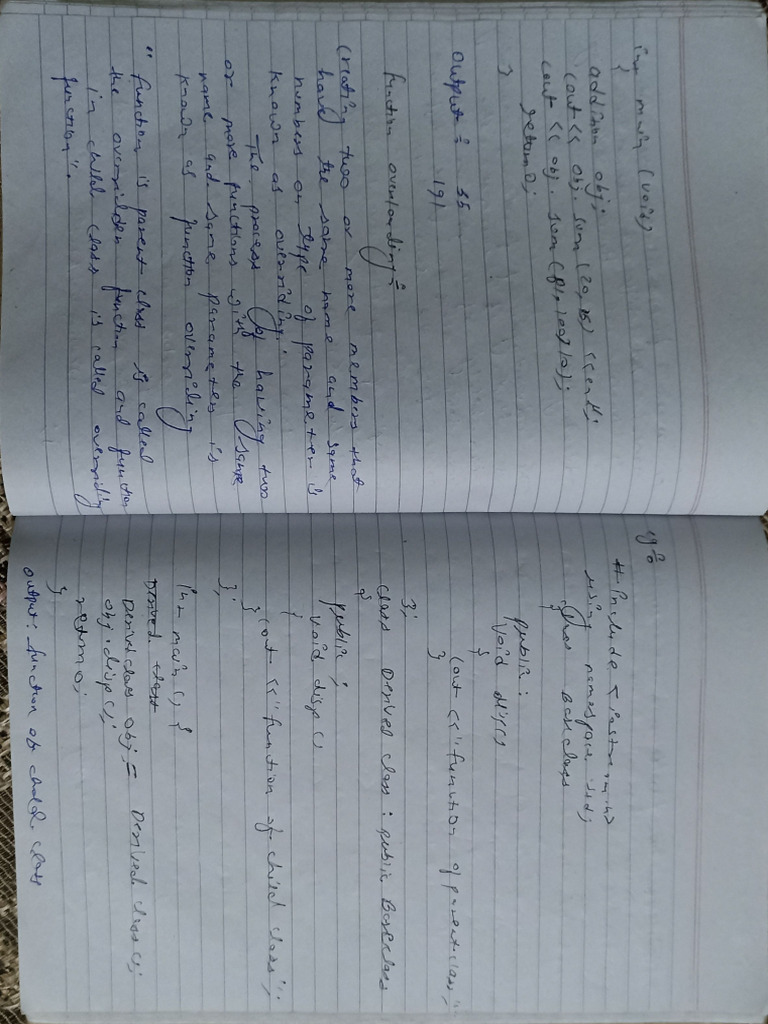 int main (void)
{
addition obj;
cout << obj. sum (20, 15) << endl;
cout << obj. sum (81, 100, 10);
return 0;
}
Output : 35
191
function overloading :
Creating two or more members that
have the same name and same
numbers or type of parameter is
known as overriding.
The process of having two
or more functions with the same
name and same parameters is
known as function overriding
" function is parent class is called
the overridden function and function
in child class is called overriding
function".
eg :
# include < iostream.h>
using namespace std;
class Baseclass
{
public :
void disp()
{
cout <<"function of parent class"
}
};
class Derived class : public Baseclass
{
public :
void disp()
{
cout << "function of child class";
}
};
int main () {
Derived class
Derived class obj = Derived class ();
obj. disp ();
return 0;
}
output : function of child class